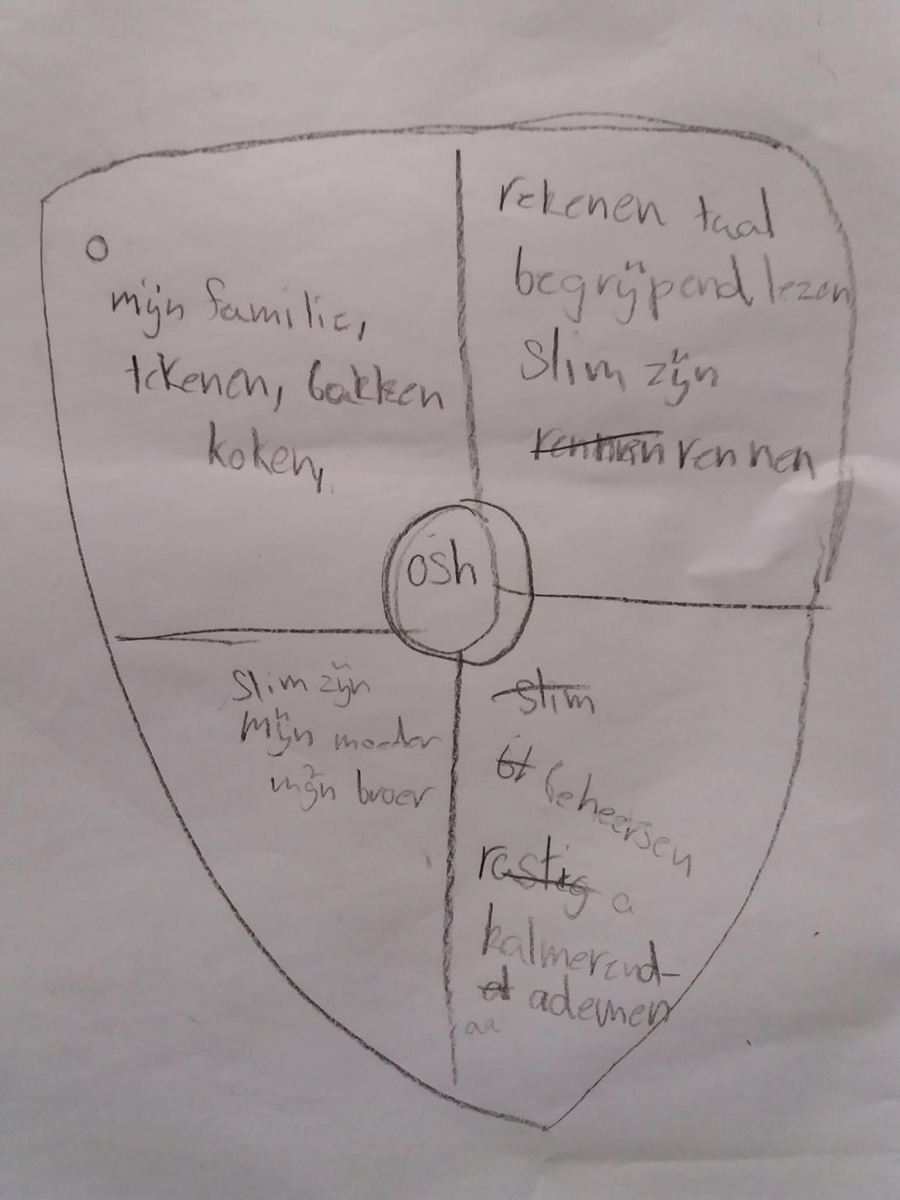 o
mijn familie,
tekenen, bakken
koken,
rekenen taal
begrijpend lezen
slim zijn
rennen
osh
slim zijn
mijn moeder
mijn broer
slim
beheersen
rustig a
kalmerend-
ademen
aa